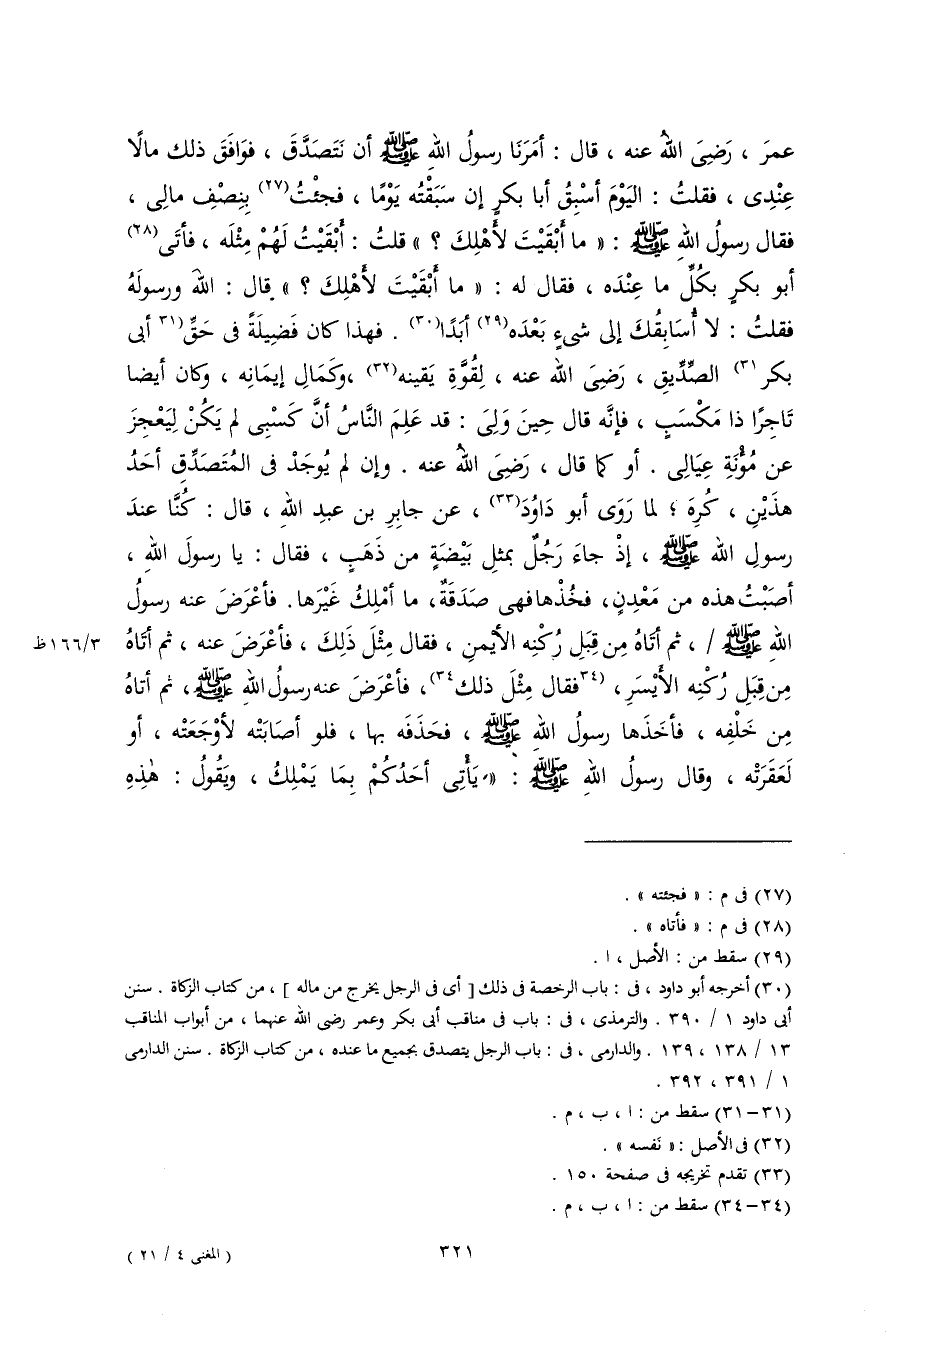 عمرَ ، رَضِىَ اللهُ عنه ، قال : أمَرَنَا رسولُ اللهِ ﷺ أن نَتَصَدَّقَ ، فوَافَقَ ذلك مالًا
عِنْدِى ، فقلتُ : اليَوْمَ أسْبِقُ أبا بكرٍ إن سَبَقْتُه يَوْمًا ، فجئْتُ(٢٧) بِنِصْفِ مالِى ،
فقال رسولُ اللهِ ﷺ : « ما أَبْقَيْتَ لأَهْلِكَ ؟ » قلتُ : أَبْقَيْتُ لَهُمْ مِثْلَه ، فأتَى(٢٨)
أبو بكرٍ بكُلِّ ما عِنْدَه ، فقال له : « ما أَبْقَيْتَ لأَهْلِكَ ؟ » قال : اللهَ ورسولَهُ
فقلتُ : لا أُسَابِقُكَ إلى شىءٍ بَعْدَه(٢٩) أبَدًا(٣٠) . فهذا كان فَضِيلَةً فى حَقِّ(٣١ أبى
بكر٣١) الصِّدِّيقِ ، رَضِىَ الله عنه ، لِقُوَّةِ يَقينه(٣٢) ،وكَمَالِ إيمَانِه ، وكان أيضا
تَاجِرًا ذا مَكْسَبٍ ، فإنَّه قال حِينَ وَلِىَ : قد عَلِمَ النَّاسُ أنَّ كَسْبِى لم يَكُنْ لِيَعْجِزَ
عن مُؤْنَةِ عِيَالِى . أو كما قال ، رَضِىَ اللهُ عنه . وإن لم يُوجَدْ فى المُتَصَدِّقِ أحَدُ
هذَيْنِ ، كُرِهَ ؛ لما رَوَى أبو دَاوُدَ(٣٣) ، عن جابِرِ بن عبدِ اللهِ ، قال : كُنَّا عندَ
رسولِ الله ﷺ ، إذْ جاءَ رَجُلٌ بمثلِ بَيْضَةٍ من ذَهَبٍ ، فقال : يا رسولَ اللهِ ،
أصَبْتُ هذه من مَعْدِنٍ، فخُذْها فهى صَدَقَةٌ، ما أمْلِكُ غَيْرَها. فأعْرَضَ عنه رسولُ
اللهِ ﷺ / ، ثم أتَاهُ مِن قِبَلِ رُكْنِه الأيْمنِ ، فقال مِثْلَ ذَلِكَ ، فأعْرَضَ عنه ، ثم أتَاهُ ١٦٦/٣ظ
مِن قِبَلِ رُكْنِه الأَيْسَرِ، (٣٤فقال مِثْلَ ذلك٣٤)، فأعْرَضَ عنه رسولُ اللهِ ﷺ، ثم أتاهُ
مِن خَلْفِه ، فأخَذَها رسولُ اللهِ ﷺ ، فحَذَفَه بها ، فلو أصابَتْه لأوْجَعَتْه ، أو
لَعَقَرَتْه ، وقال رسولُ اللهِ ﷺ : « يَأْتِى أحَدُكُمْ بِمَا يَمْلِكُ ، ويَقُولُ : هٰذِهِ
(٢٧) فى م : « فجئته » .
(٢٨) فى م : « فأتاه » .
(٢٩) سقط من : الأصل ، ا .
(٣٠) أخرجه أبو داود ، فى : باب الرخصة فى ذلك [ أى فى الرجل يخرج من ماله ] ، من كتاب الزكاة . سنن
أبى داود ١ / ٣٩٠ . والترمذى ، فى : باب فى مناقب أبى بكر وعمر رضى الله عنهما ، من أبواب المناقب
١٣ / ١٣٨ ، ١٣٩ . والدارمى ، فى : باب الرجل يتصدق بجميع ما عنده ، من كتاب الزكاة . سنن الدارمى
١ / ٣٩١ ، ٣٩٢ .
(٣١-٣١) سقط من : ا ، ب ، م .
(٣٢) فى الأصل :« نَفسه » .
(٣٣) تقدم تخريجه فى صفحة ١٥٠ .
(٣٤-٣٤) سقط من : ا ، ب ، م .
٣٢١ ( المغنى ٤ / ٢١ )